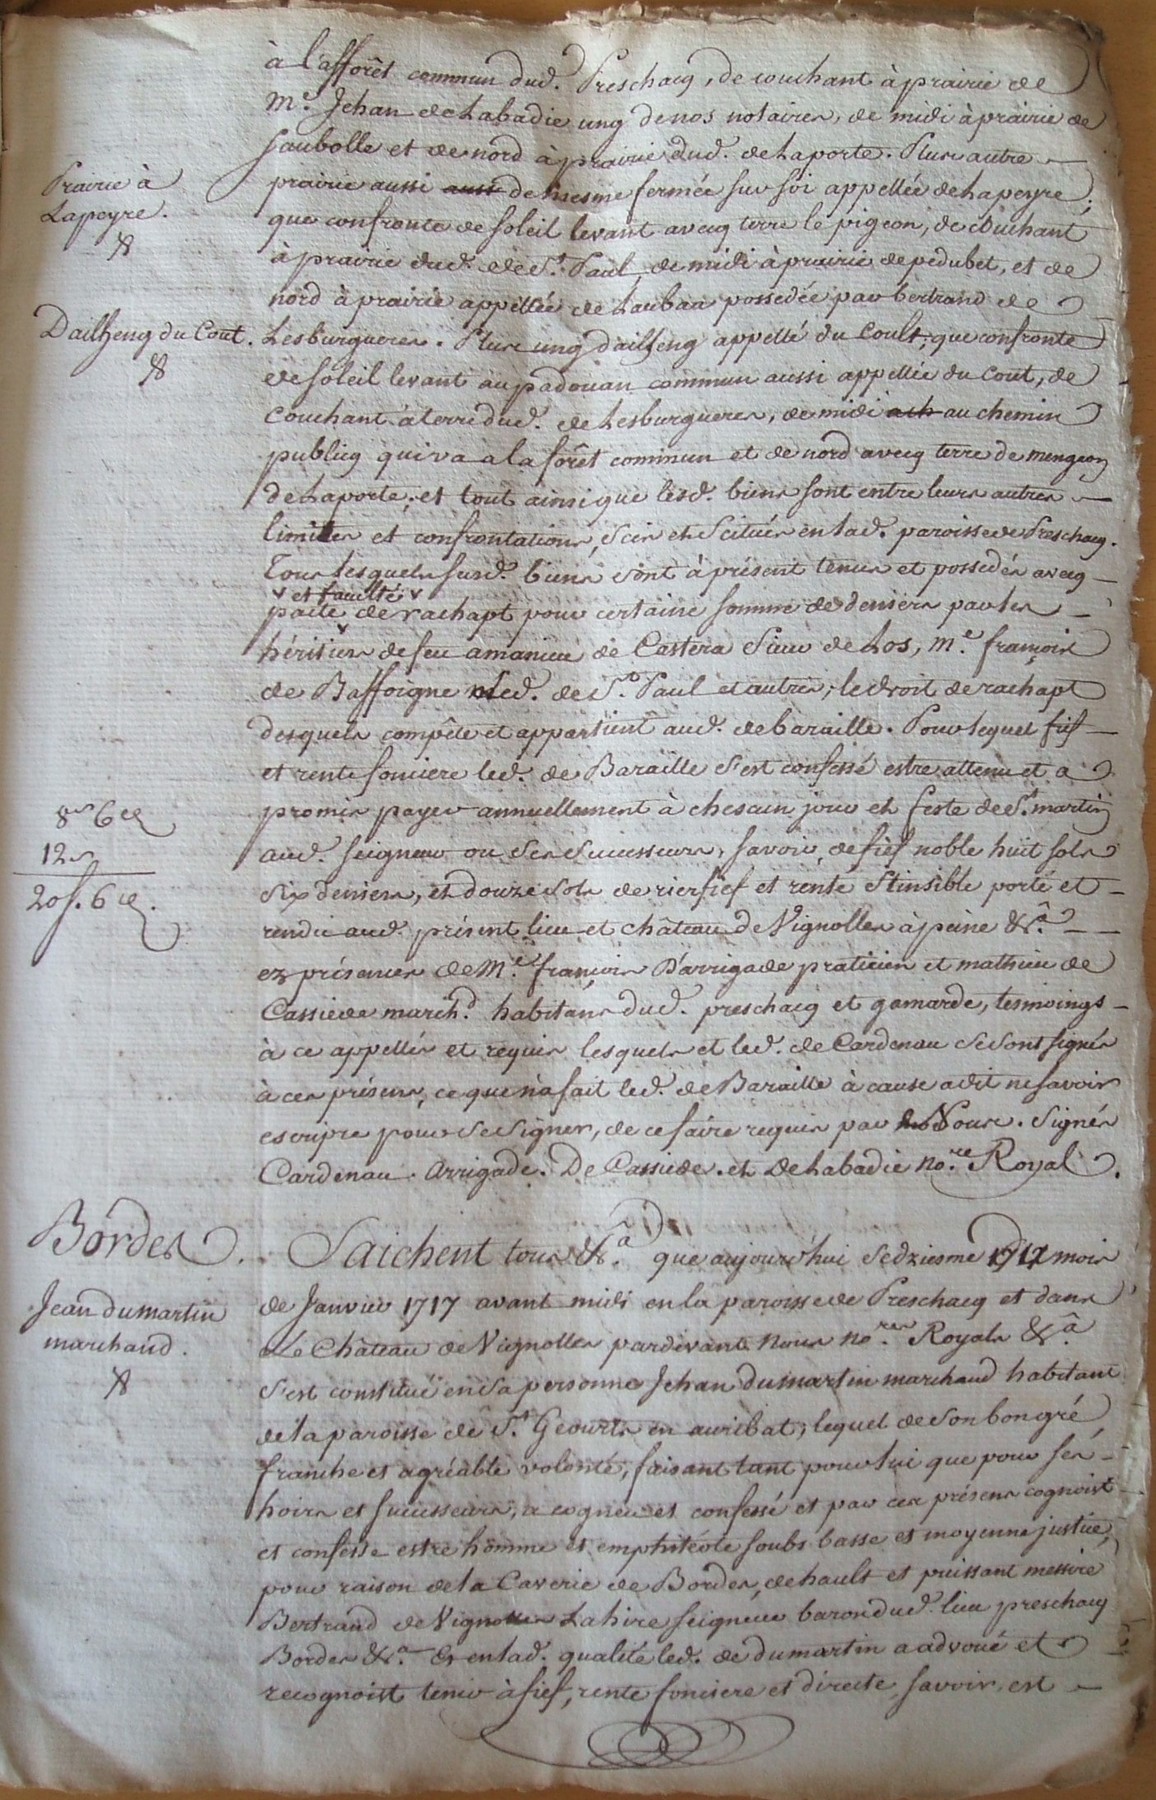 à l'afforêt commun dud. Preschacq, de couchant à prairie de
Me. Jehan de Labadie ung de nos notaires, de midi à prairie de
Saubolle et de nord à prairie dud. de Laporte. Plus autre
Prairie à
Lapeyre.
prairie aussi aussi de mesme fermée sur soi appellée de Lapeyre,
que confronte de soleil levant avecq terre le pigeon, de couchant
à prairie dud. de St. Paul de midi à prairie de pédubet, et de
nord à prairie appellée de Laubaa possedée par bertrand de
Dailheng du Cout.
Lesburgueres. Plus ung dailheng appellé du Coult, que confronte
de soleil levant au padouan commun aussi appellée du Cout, de
Couchant à terre dud. de Lesburgueres, de midi au chemin
publicq qui va a la forêt commun et de nord avecq terre de mengeon
de Laporte, et tout ainsi que lesd. biens sont entre leurs autres
limites et confrontations, scis et scitués en lad. paroisse de Preschacq.
Tous lesquels susd. biens sont à présent tenus et possedés avecq
et faculté
pacte de rachapt pour certaine somme de deniers par les
héritiers de feu amanieu de Castera Sieur de Los, Me. françois
de Baffoigne led. de St. Paul et autres, le droit de rachapt
desquels compête et appartient aud. de baraille. Pour lequel fief
et rente fonciere led. de Baraille s'est confessé estre attenu et a
promis payer annuellement à chescun jour et feste de St. martin
8s 6d
12s
20s. 6d.
aud. seigneur ou ses successeurs, savoir, de fief noble huit sols
six deniers, et douze sols de rierfief et rente Stinsible porté et
rendu aud. présent lieu et château de Vignolles à peine &a.
ez présences de Me. françois D'arrigade praticien et mathieu de
Cassiede march.d habitans dud. preschacq et gamarde, tesmoings
à ce appellés et requis lesquels et led. de Cardenau se sont signés
à ces présens, ce que n'a fait led. de Baraille à cause a dit ne savoir
escripre pour se signer, de ce faire requis par Nous. Signés
Cardenau. Arrigade. De Cassiede. et De Labadie no.re Royal.
Bordes.
Saichent tous &a. que aujourd'hui sedziesme mois
Jean dumartin
marchand.
de Janvier 1717 avant midi en la paroisse de Preschacq et dans
le Château de Vignolles pardevant Nous no.res Royals &a
s'est constitué en sa personne Jehan dumartin marchand habitant
de la paroisse de St. Geours en auribat, lequel de son bon gré,
franche et agréable volonté, faisant tant pour lui que pour ses
hoirs et successeurs, a cogneu et confessé et par ces présens cognoist
et confesse estre homme et emphitéote soubs basse et moyenne justice,
pour raison de la Caverie de Bordes, de hault et puissant messire
Bertrand de Vignolles Lahire seigneur baron dud. lieu preschacq
Bordes &a. Et en lad. qualité led. de dumartin a advoué et
recognoist tenir à fief, rente fonciere et directe, savoir, est